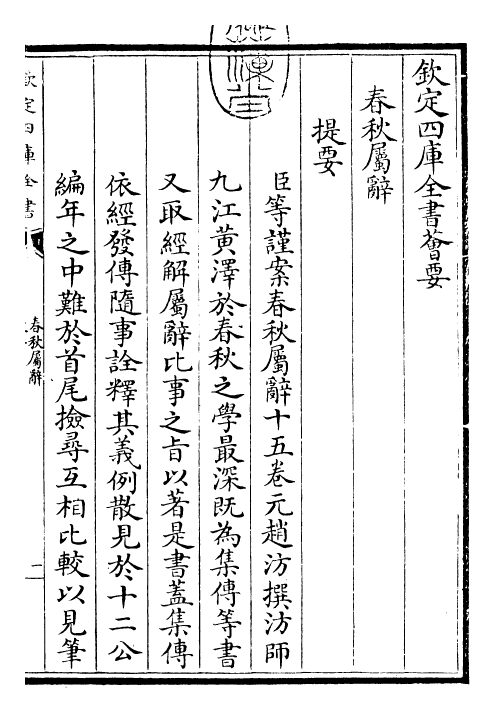 欽定四庫全書薈要
春秋屬辭
提要
臣等謹案春秋屬辭十五卷元趙汸撰汸師
九江黃澤於春秋之學最深既為集傳等書
又取經解屬辭比事之旨以著是書蓋集傳
依經發傳隨事詮釋其義例散見於十二公
編年之中難於首尾撿尋互相比較以見筆
欽定四庫全書
春秋屬辭
二